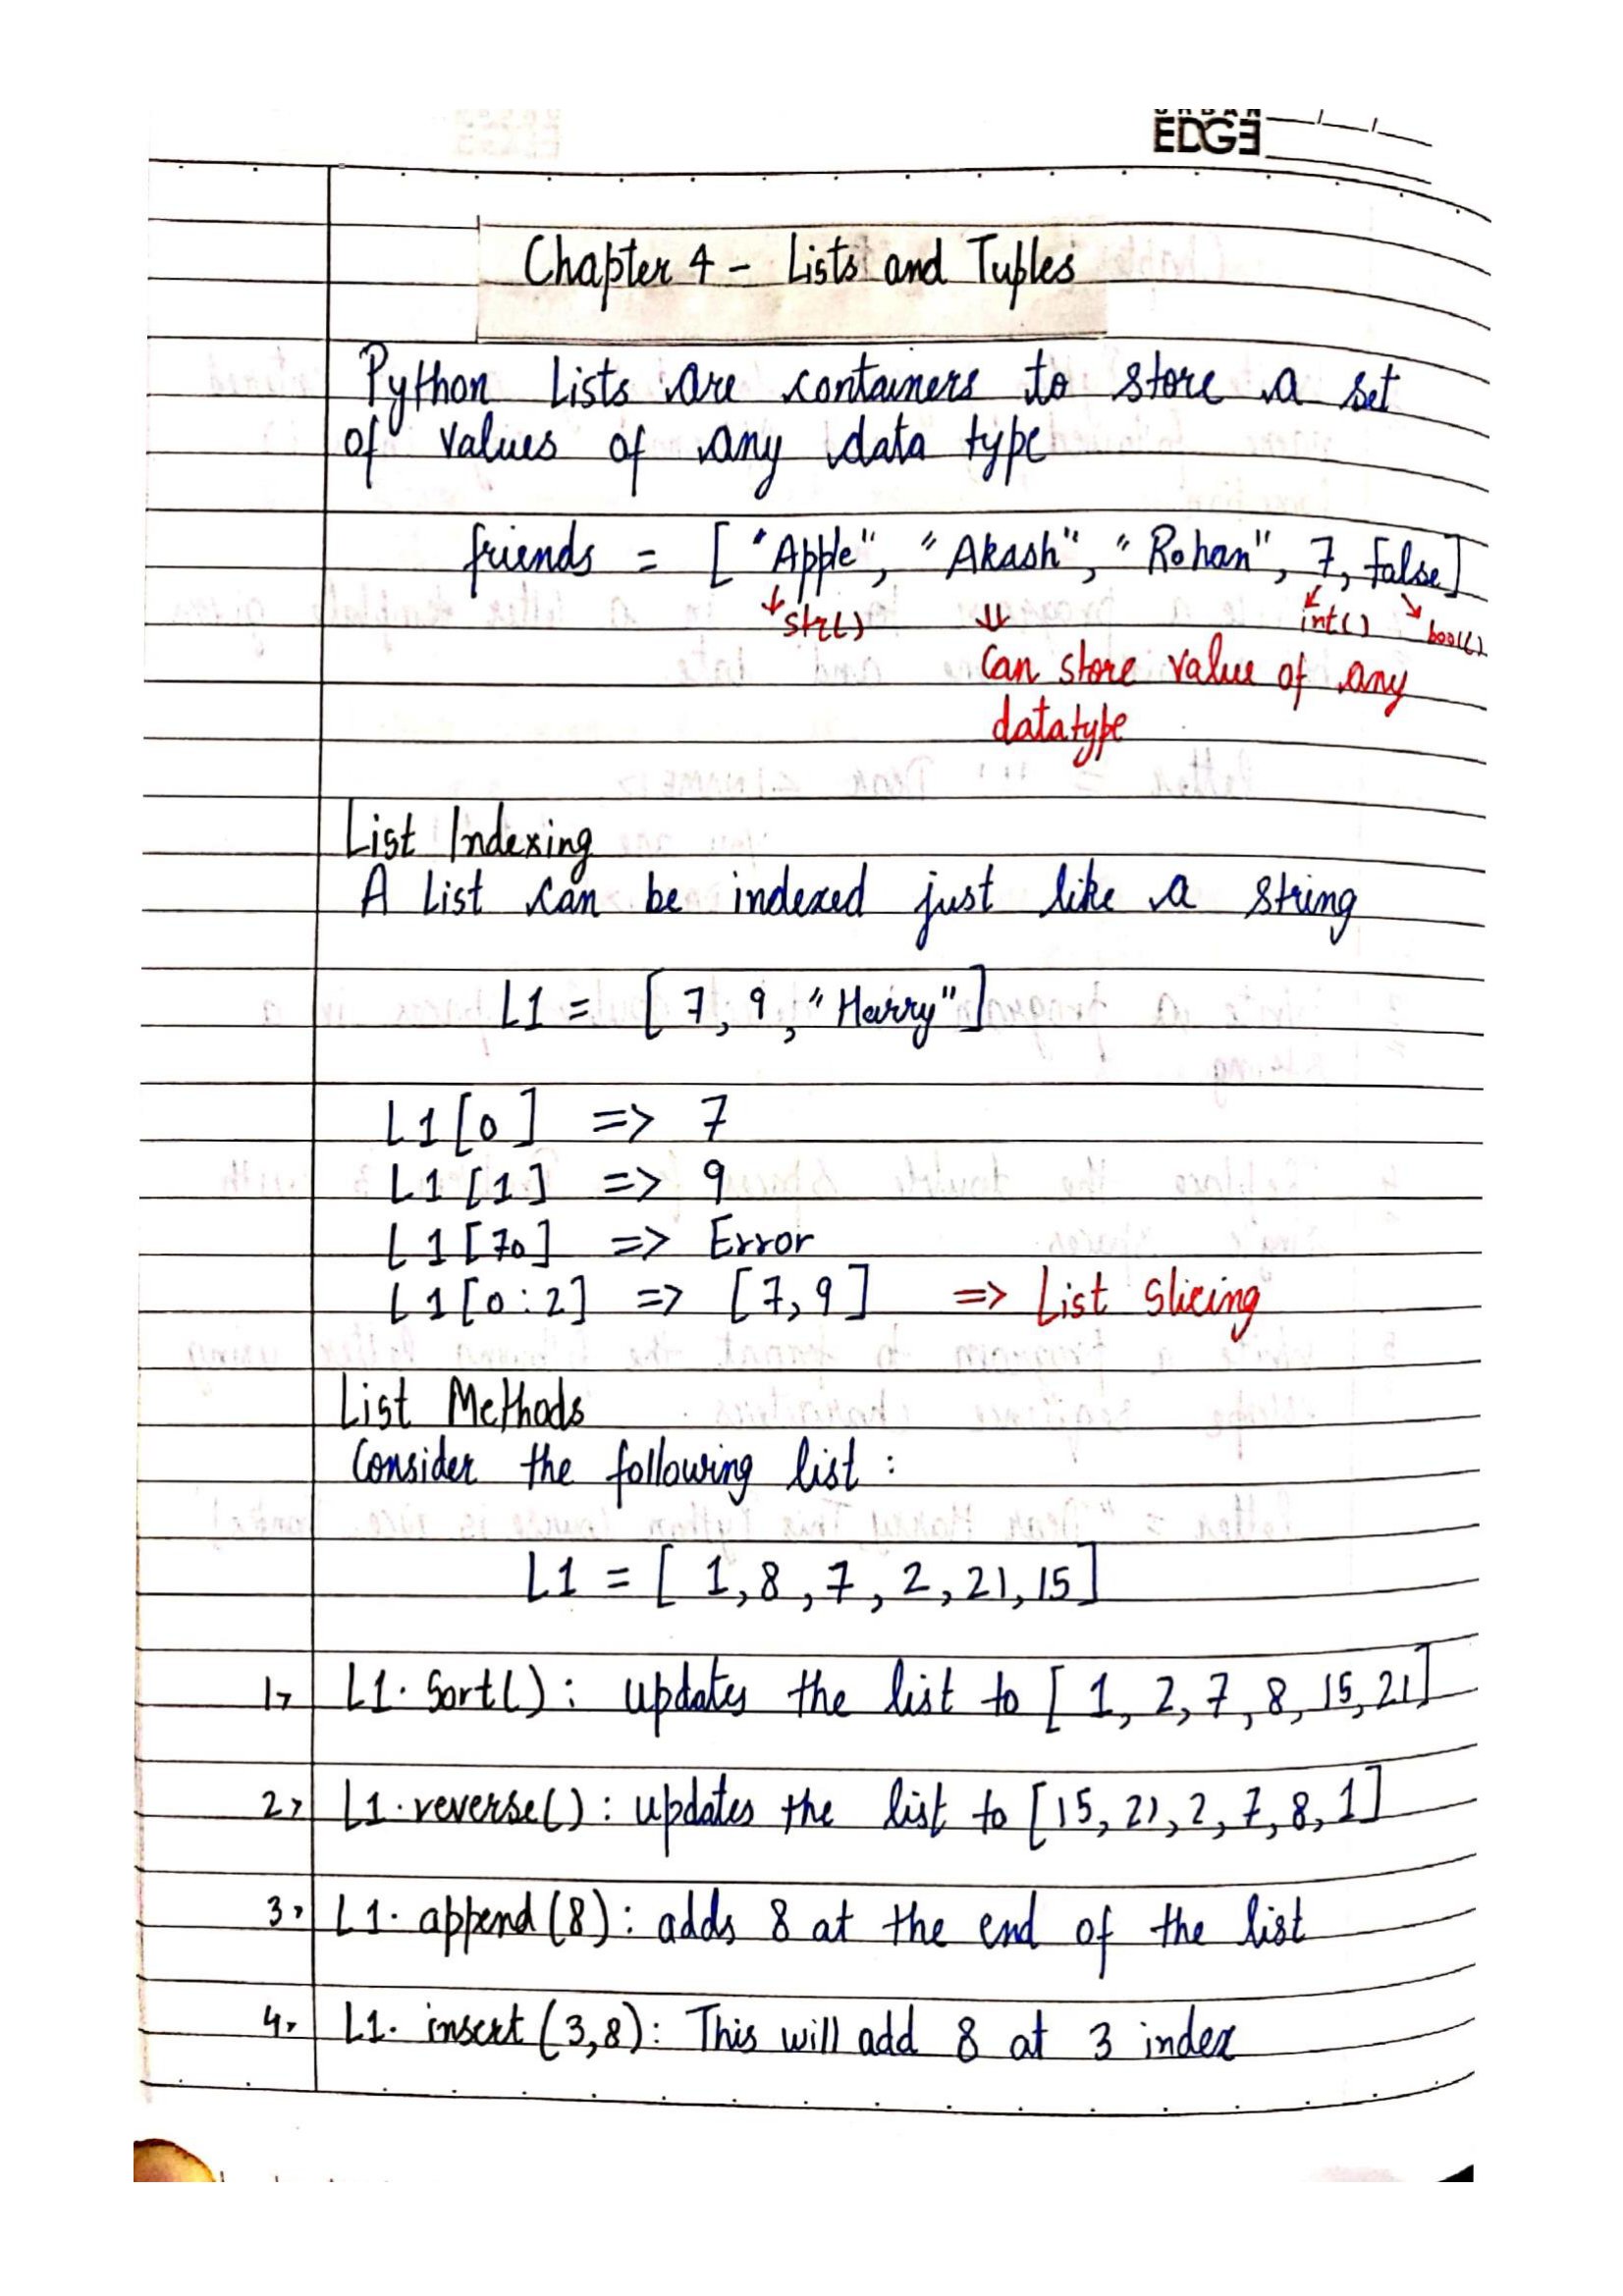 URBAN
EDGE
Chapter 4 - Lists and Tuples
Python Lists are containers to store a set
of values of any data type
friends = ["Apple", "Akash", "Rohan", 7, False]
str() int() bool()
Can store value of any
datatype
List Indexing
A List can be indexed just like a string
L1 = [7, 9, "Harry"]
L1[0] => 7
L1[1] => 9
L1[70] => Error
L1[0:2] => [7,9] => List Slicing
List Methods
Consider the following list :
L1 = [1,8,7,2,21,15]
1, L1.Sort() : updates the list to [1, 2, 7, 8, 15, 21]
2, L1.reverse() : updates the list to [15, 21, 2, 7, 8, 1]
3, L1.append(8) : adds 8 at the end of the list
4, L1.insert(3,8) : This will add 8 at 3 index